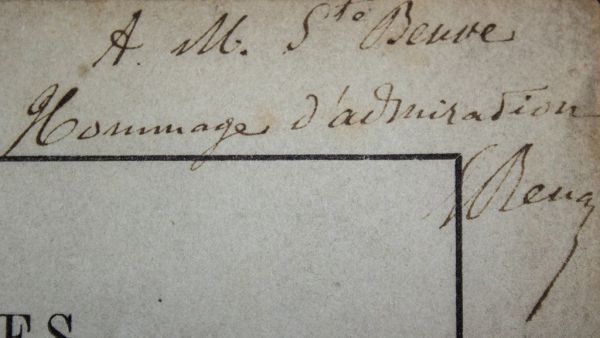 A M. Ste Beuve
Hommage d'admiration
ES